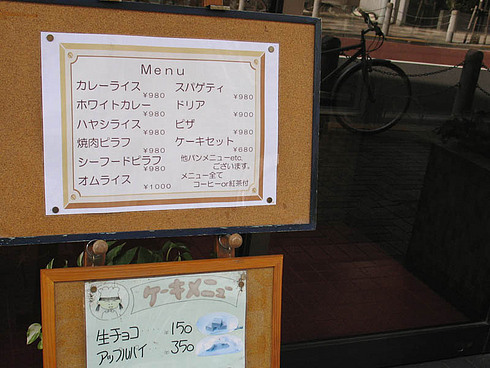 Menu
カレーライス ¥980
ホワイトカレー ¥980
ハヤシライス ¥980
焼肉ピラフ ¥980
シーフードピラフ ¥980
オムライス ¥1000
スパゲティ ¥980
ドリア ¥900
ピザ ¥980
ケーキセット ¥680
他パンメニューetc.
ございます。
メニュー全て
コーヒーor紅茶付
ケーキメニュー
生チョコ 150
アップルパイ 350